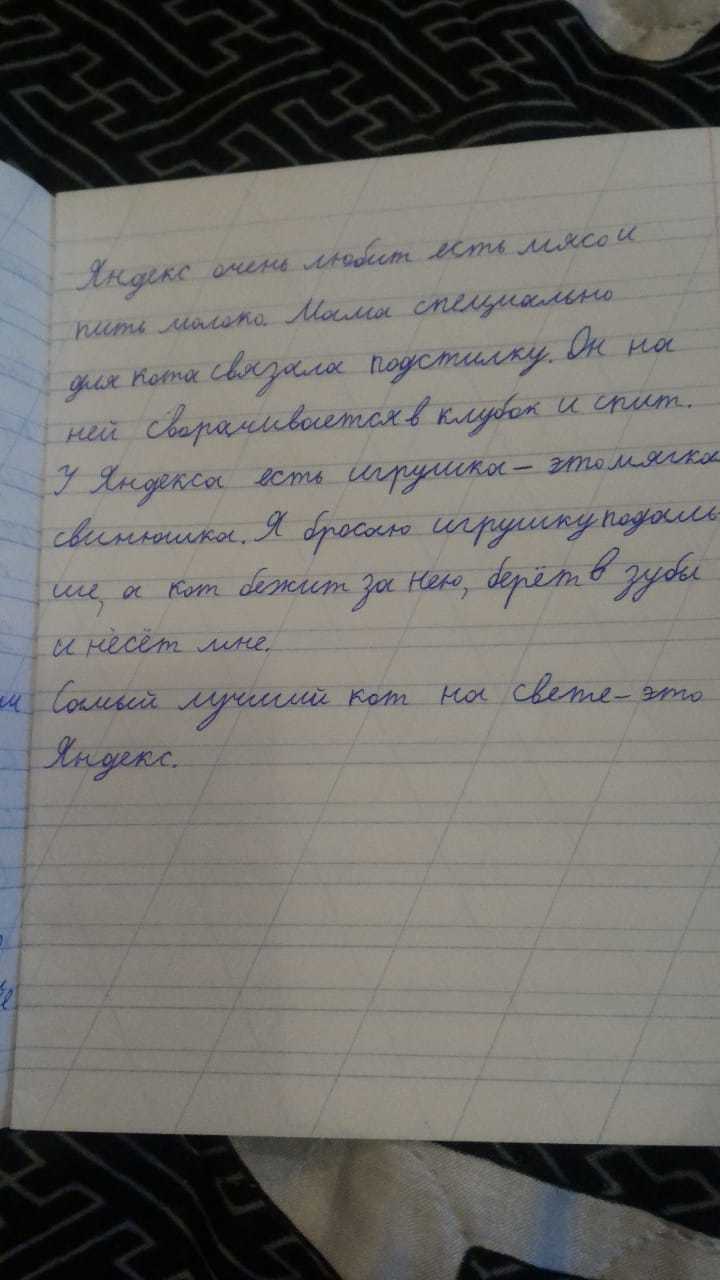 Яндекс очень любит есть мясо и
пить молоко. Мама специально
для кота связала подстилку. Он на
ней сворачивается в клубок и спит.
У Яндекса есть игрушка – это мягка
свинюшка. Я бросаю игрушку подаль-
ше, а кот бежит за нею, берёт в зубы
и несёт мне.
Самый лучший кот на свете – это
Яндекс.